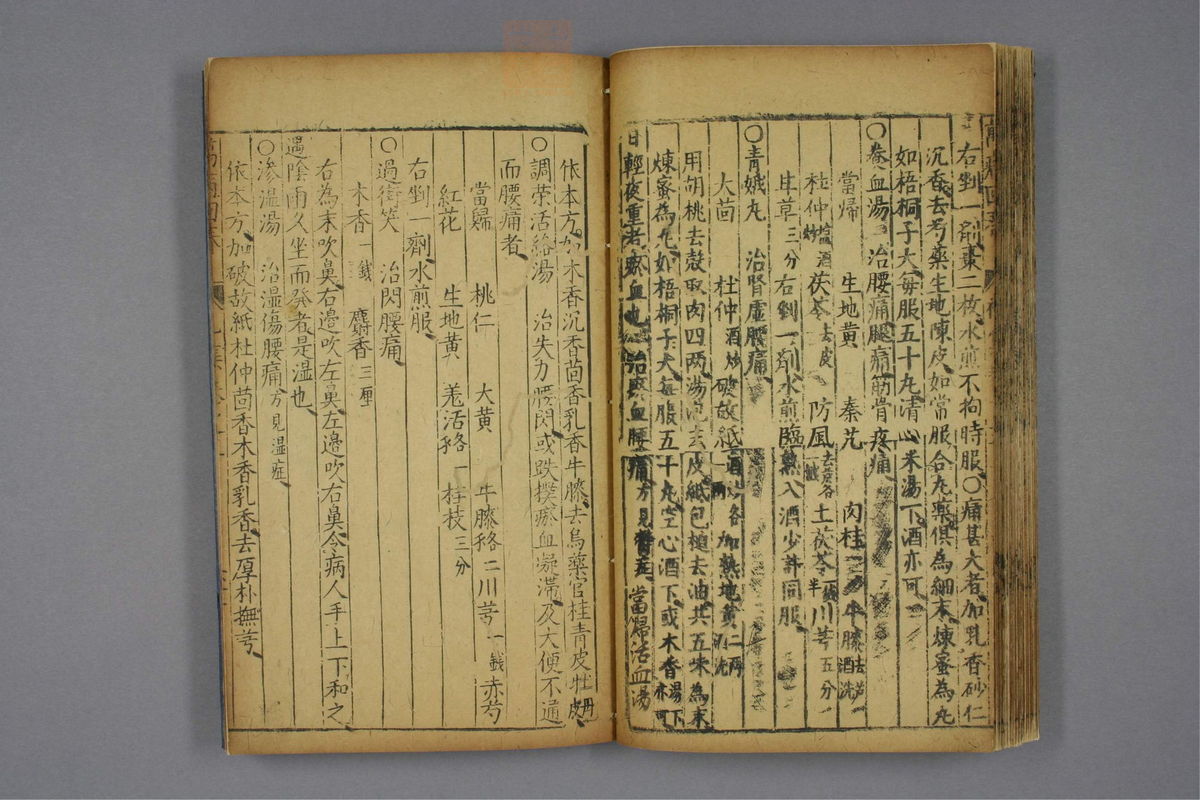 右剉一剤棗二枚水煎不拘時服○痛甚大者加乳香砂仁
沉香去芍藥生地陳皮如常服合丸藥俱為細末煉蜜為丸
如梧桐子大每服五十丸清心米湯下酒亦可
○養血湯 治腰痛腿痛筋骨疼痛
當帰 生地黄 秦艽 肉桂 牛膝去芦酒洗
杜仲塩酒炒 茯苓去皮 防風去芦各一錢 土茯苓一錢半 川芎五分
甘草三分 右剉一剤水煎臨熟入酒少許同服
○青娥丸 治腎虛腰痛
大茴 杜仲酒炒 破故紙酒炒各一兩 加熟地黄二兩酒洗
用胡桃去殼取肉四两湯泡去皮紙包槌去油共五味為末
煉蜜為丸如梧桐子大每服五十丸空心酒下或木香湯下亦可
日輕夜重者瘀血也 治瘀血腰痛方見 當歸活血湯
依本方加木香沉香茴香乳香牛膝去烏藥官桂青皮牡丹皮
○調荣活絡湯 治失力腰閃或跌撲瘀血凝滯及大便不通
而腰痛者
當歸 桃仁 大黄 牛膝各二 川芎一錢 赤芍
紅花 生地黄 羌活各一 桂枝三分
右剉一齊水煎服
○過街笑 治閃腰痛
木香一錢 麝香三厘
右為末吹鼻右邊吹左鼻左邊吹右鼻令病人手上下和之
遇陰雨久坐而發者是湿也
○滲湿湯 治湿傷腰痛方見湿症
依本方加破故紙杜仲茴香木香乳香去厚朴撫芎